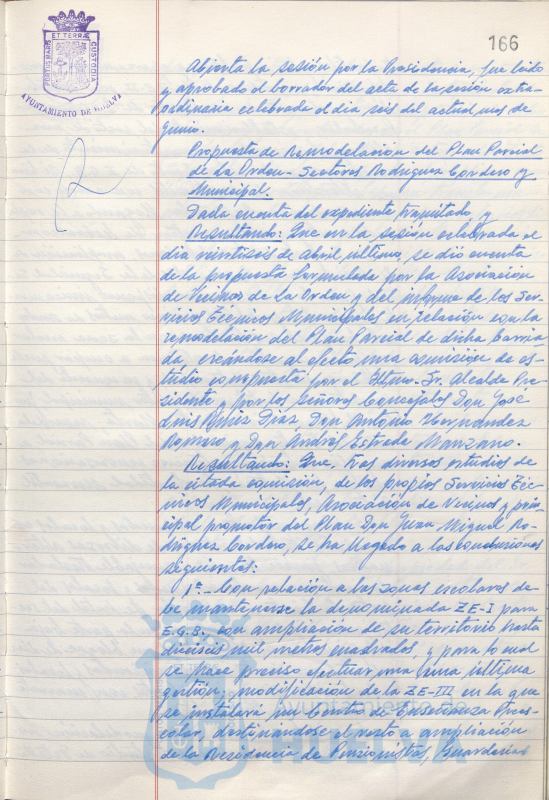 166
PORTUS MARIS ET TERRAE CUSTODIA
AYUNTAMIENTO DE HUELVA
Abierta la sesión por la Presidencia, fue leido
y aprobado el borrador del acta de la sesión extra-
ordinaria celebrada el dia seis del actual mes de
Junio.
Propuesta de Remodelación del Plan Parcial
de La Orden - Sectores Rodriguez Cordero y
Municipal.
Dada cuenta del expediente tramitado, y
Resultando: Que en la sesión celebrada el
dia veintiseis de Abril último, se dió cuenta
de la propuesta formulada por la Asociación
de Vecinos de La Orden y del informe de los Ser-
vicios Técnicos Municipales en relación con la
remodelación del Plan Parcial de dicha barria
da, creándose al efecto una comisión de es-
tudio compuesta por el Iltmo. Sr. Alcalde Pre-
sidente y por los Señores Concejales Don José
Luis Ruiz Diaz, Don Antonio Hernandez
Romero y Don Andrés Estrada Manzano.
Resultando: Que, tras diversos estudios de
la citada comisión, de los propios Servicios Téc-
nicos Municipales, Asociación de Vecinos y prin-
cipal promotor del Plan Don Juan Miguel Ro-
driguez Cordero, se ha llegado a las conclusiones
siguientes:
1ª.- Con relación a las zonas escolares de-
be mantenerse la denominada ZE-I para
E.G.B. con ampliación de su territorio hasta
dieciseis mil metros cuadrados, y para lo cual
se hace preciso efectuar una última
gestión, modificación de la ZE-III en la que
se instalará un Centro de Enseñanza Prees-
colar, destinandose el resto a ampliación
de la Residencia de Pensionistas, Guarderias
Ayuntamiento de